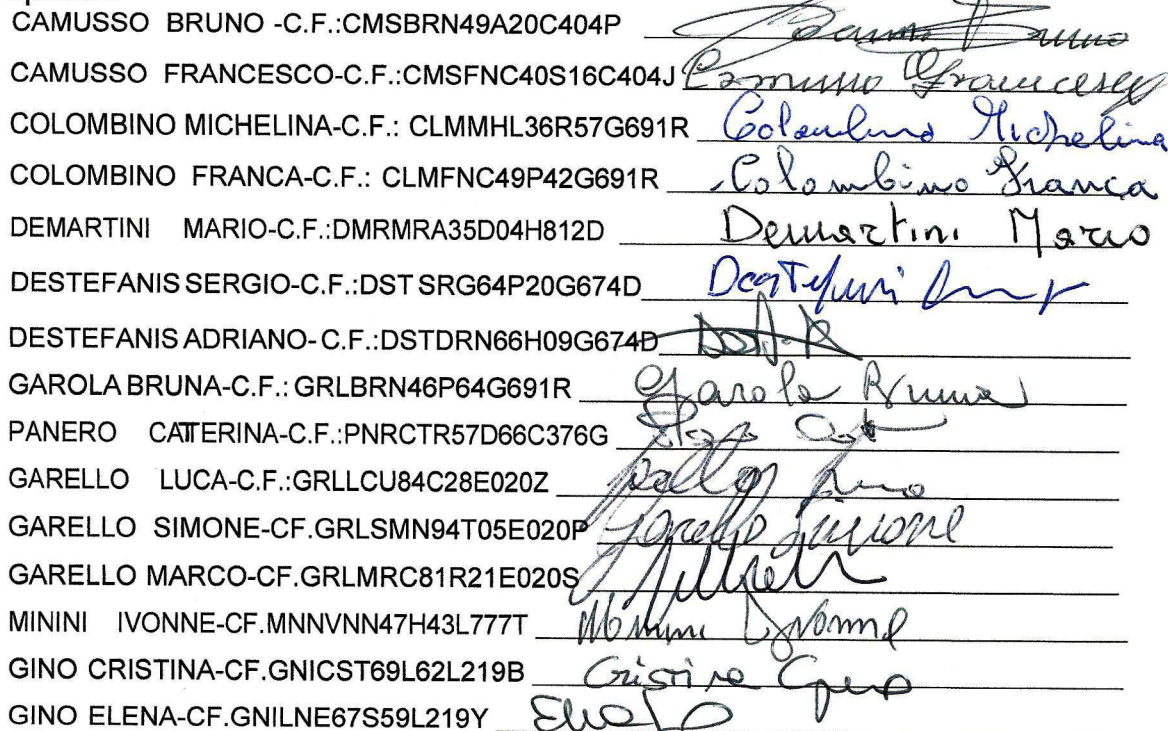 CAMUSSO BRUNO -C.F.:CMSBRN49A20C404P Bruno
CAMUSSO FRANCESCO-C.F.:CMSFNC40S16C404J Camusso Francesco
COLOMBINO MICHELINA-C.F.: CLMMHL36R57G691R Colombino Michelina
COLOMBINO FRANCA-C.F.: CLMFNC49P42G691R Colombino Franca
DEMARTINI MARIO-C.F.:DMRMRA35D04H812D Demartini Mario
DESTEFANIS SERGIO-C.F.:DST SRG64P20G674D
DESTEFANIS ADRIANO-C.F.:DSTDRN66H09G674D
GAROLA BRUNA-C.F.: GRLBRN46P64G691R Garola Bruna
PANERO CATTERINA-C.F.:PNRCTR57D66C376G
GARELLO LUCA-C.F.:GRLLCU84C28E020Z
GARELLO SIMONE-CF.GRLSMN94T05E020P Garello Simone
GARELLO MARCO-CF.GRLMRC81R21E020S
MININI IVONNE-CF.MNNVNN47H43L777T Minini Ivonne
GINO CRISTINA-CF.GNICST69L62L219B Cristina Gino
GINO ELENA-CF.GNILNE67S59L219Y